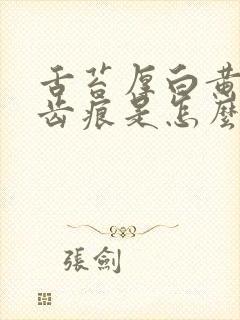 舌苔厚白黄
齿痕是怎麼
張劍